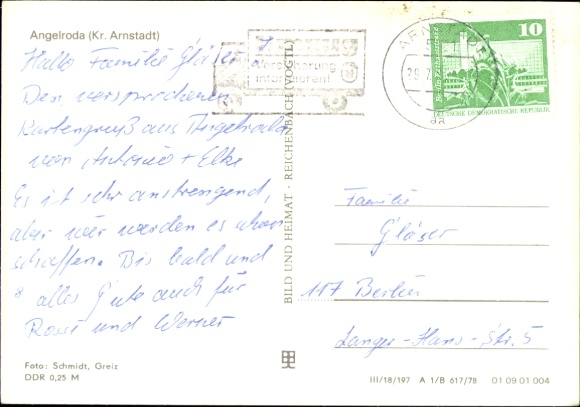 Angelroda (Kr. Arnstadt)
Hallo Familie Gläser
Den versprochenen
Kartengruß aus Angelroda
von Antonio + Elke
Es ist sehr anstrengend,
aber wir werden es schon
schaffen. Bis bald und
alles Gute auch für
Rossi und Werner
Foto: Schmidt, Greiz
DDR 0,25 M
BILD UND HEIMAT · REICHENBACH (VOGTL)
informieren!
ARNSTADT
10
DEUTSCHE DEMOKRATISCHE REPUBLIK
Familie
Gläser
117 Berlin
Langer-Hans-Str. 5
III/18/197 A 1/B 617/78 01 09 01 004